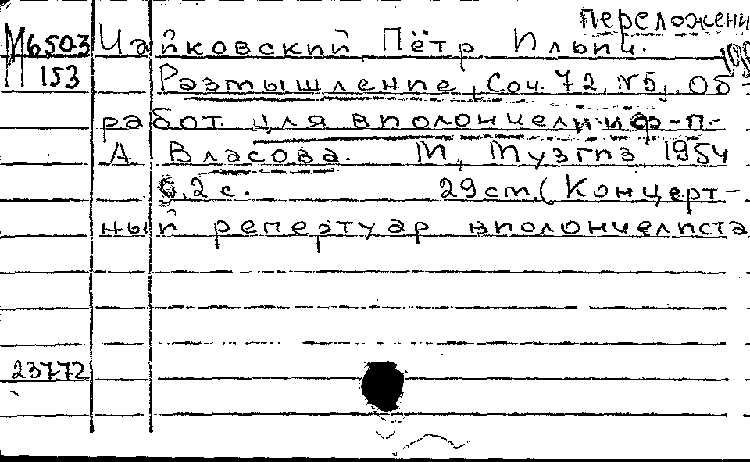 переложени
М6503 Чайковский Пётр Ильич.
П 153 Размышление, Соч. 72, №5, Об-
работ. для виолончели и ф-п.
А Власова. М, Музгиз 1954
6,2 с. 29 cm. (Концерт-
ный репертуар виолончелиста
23772